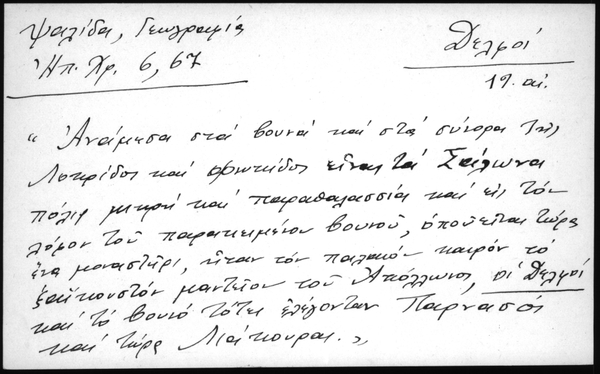 Ψαλίδα, Γεωγραφία
Ἠπ. Χρ. 6, 67
Δελφοί
19. αἰ.
« Ἀνάμεσα στά βουνά καί στά σύνορα τῆς
Λοκρίδος καί Φωκίδος εἶναι τά Σάλωνα
πόλις μικρή καί παραθαλασσία καί εἰς τόν
λόφον τοῦ παρακειμένου βουνοῦ, ὁποῦ εἶται τώρα
ἕνα μοναστήρι, ἦταν τόν παλαιόν καιρόν τό
ἐξακουστόν μαντεῖον τοῦ Ἀπόλλωνος, οἱ Δελφοί
καί τό βουνό τότε ἐλέγονταν Παρνασός
καί τώρα Λιάκουρα. »